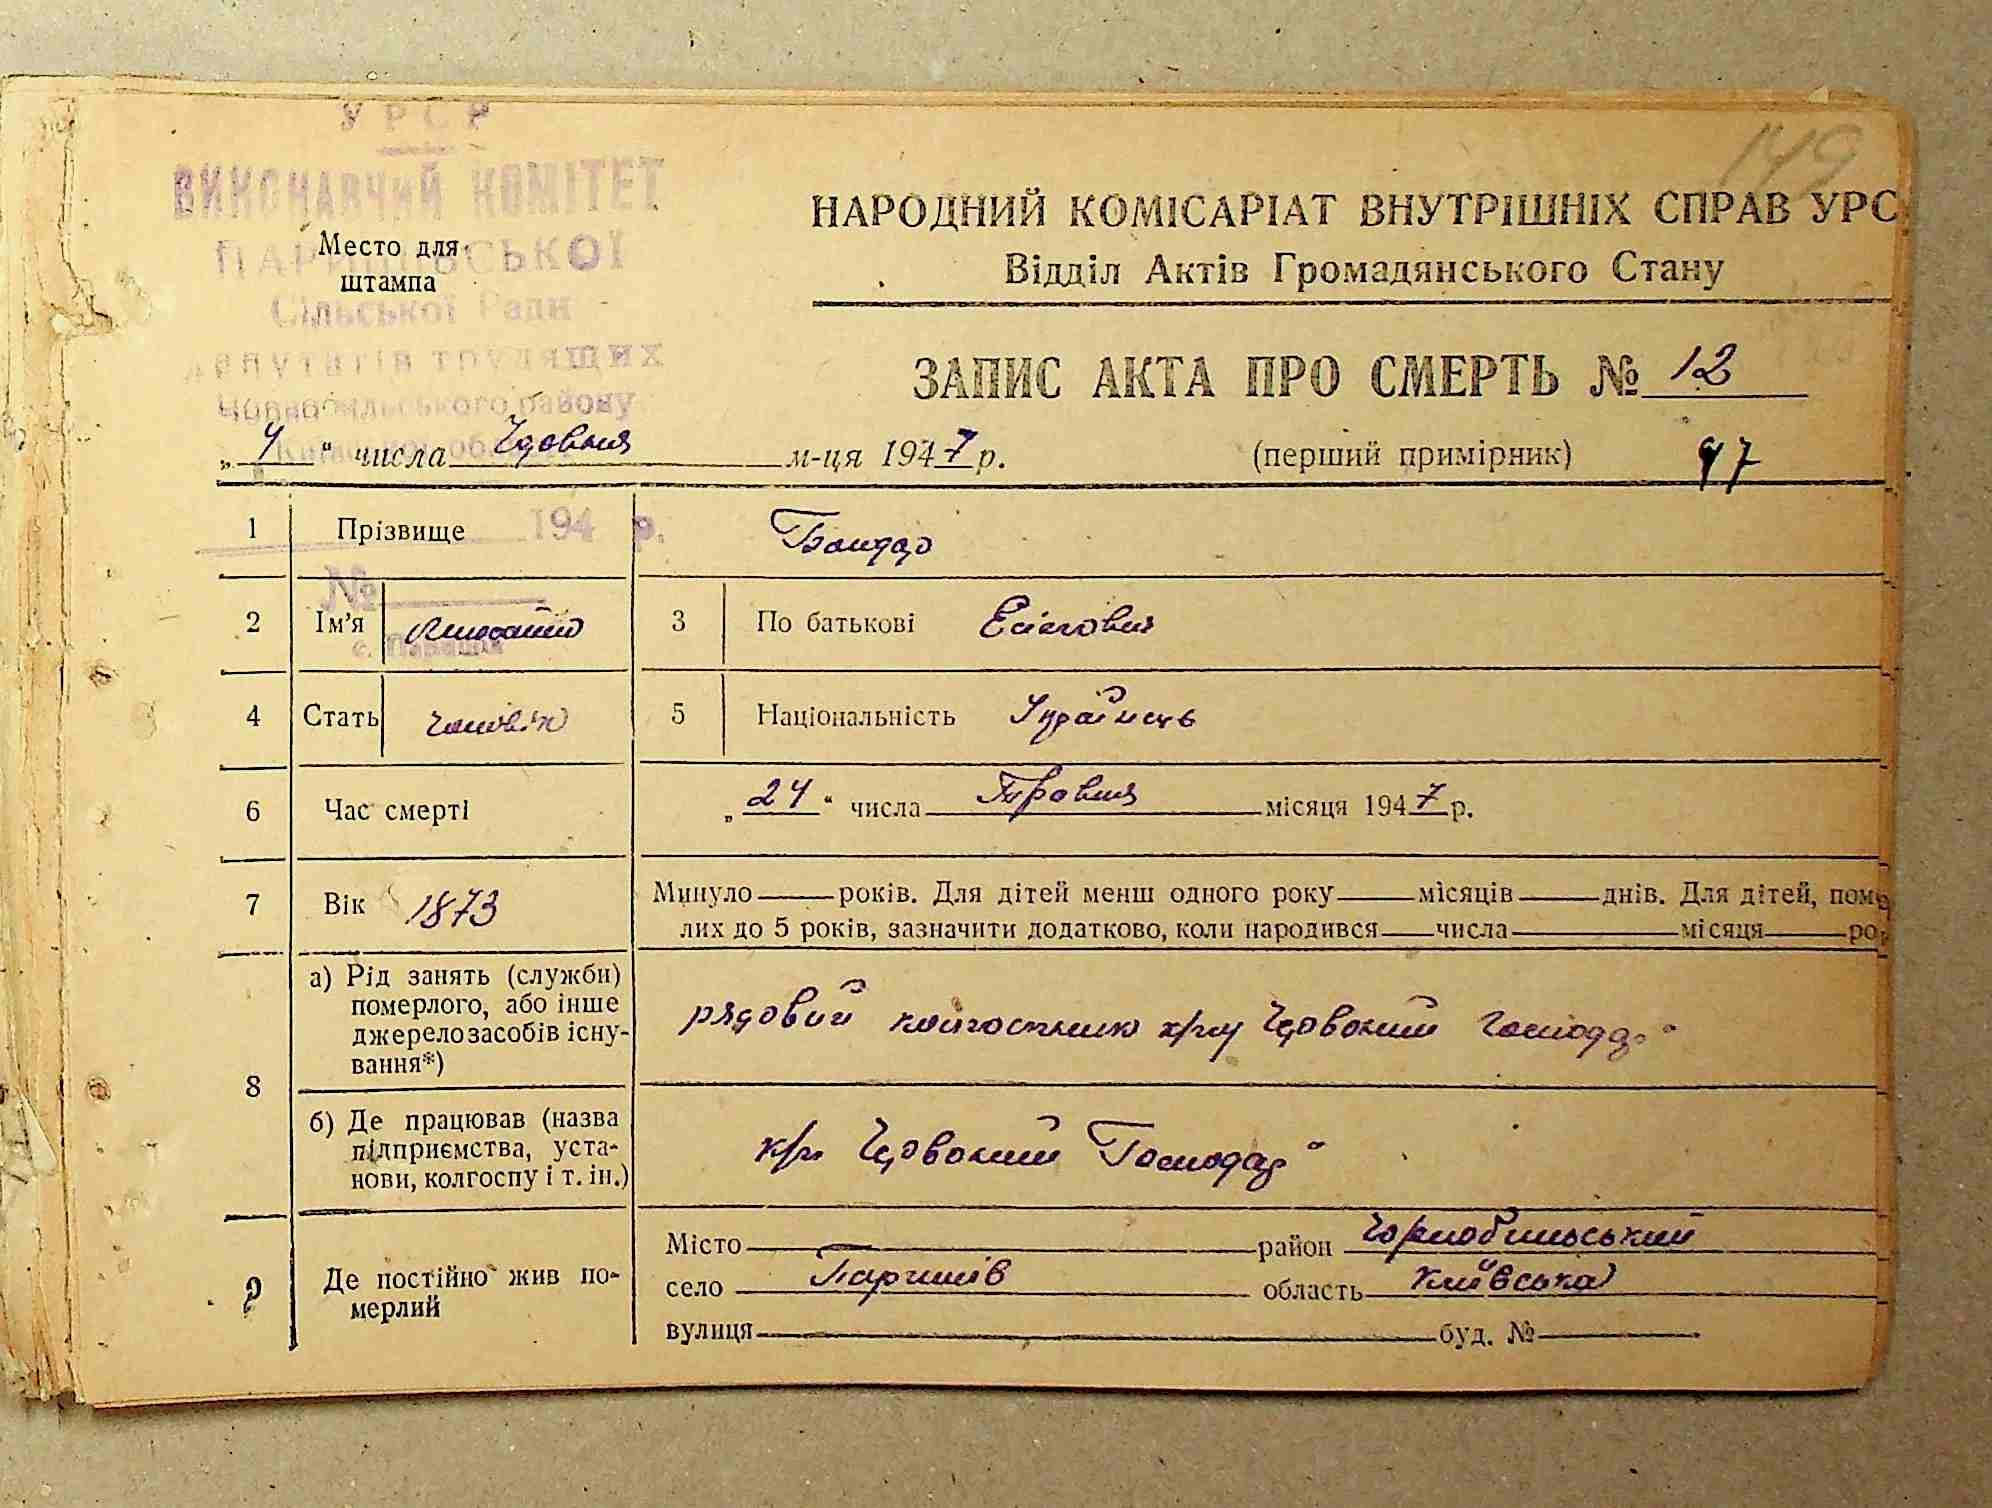 149
УРСР
ВИКОНАВЧИЙ КОМІТЕТ
ПАРИШІВСЬКОЇ
Сільської Ради
депутатів трудящих
Чорнобильського району
Київської об
194 р.
№
с. Паришів
Место для
штампа
НАРОДНИЙ КОМІСАРІАТ ВНУТРІШНІХ СПРАВ УРС
Відділ Актів Громадянського Стану
ЗАПИС АКТА ПРО СМЕРТЬ № 12
„4“ числа Червня м-ця 1947 р. (перший примірник) 97
1 Прізвище Бондар
2 Ім’я 3 По батькові
4 Стать чоловік 5 Національність Українець
6 Час смерті „24“ числа Травня місяця 1947 р.
7 Вік 1873 Минуло років. Для дітей менш одного року місяців днів. Для дітей, поме
лих до 5 років, зазначити додатково, коли народився числа місяця ро
8 а) Рід занять (служби)
померлого, або інше
джерело засобів існу-
вання*)
рядовий колгоспник к/гпу Червоний Господар“
б) Де працював (назва
підприємства, уста-
нови, колгоспу і т. ін.)
к/г Червоний Господар“
9 Де постійно жив по-
мерлий
Місто район Чорнобильський
село Паришів область Київська
вулиця буд. №